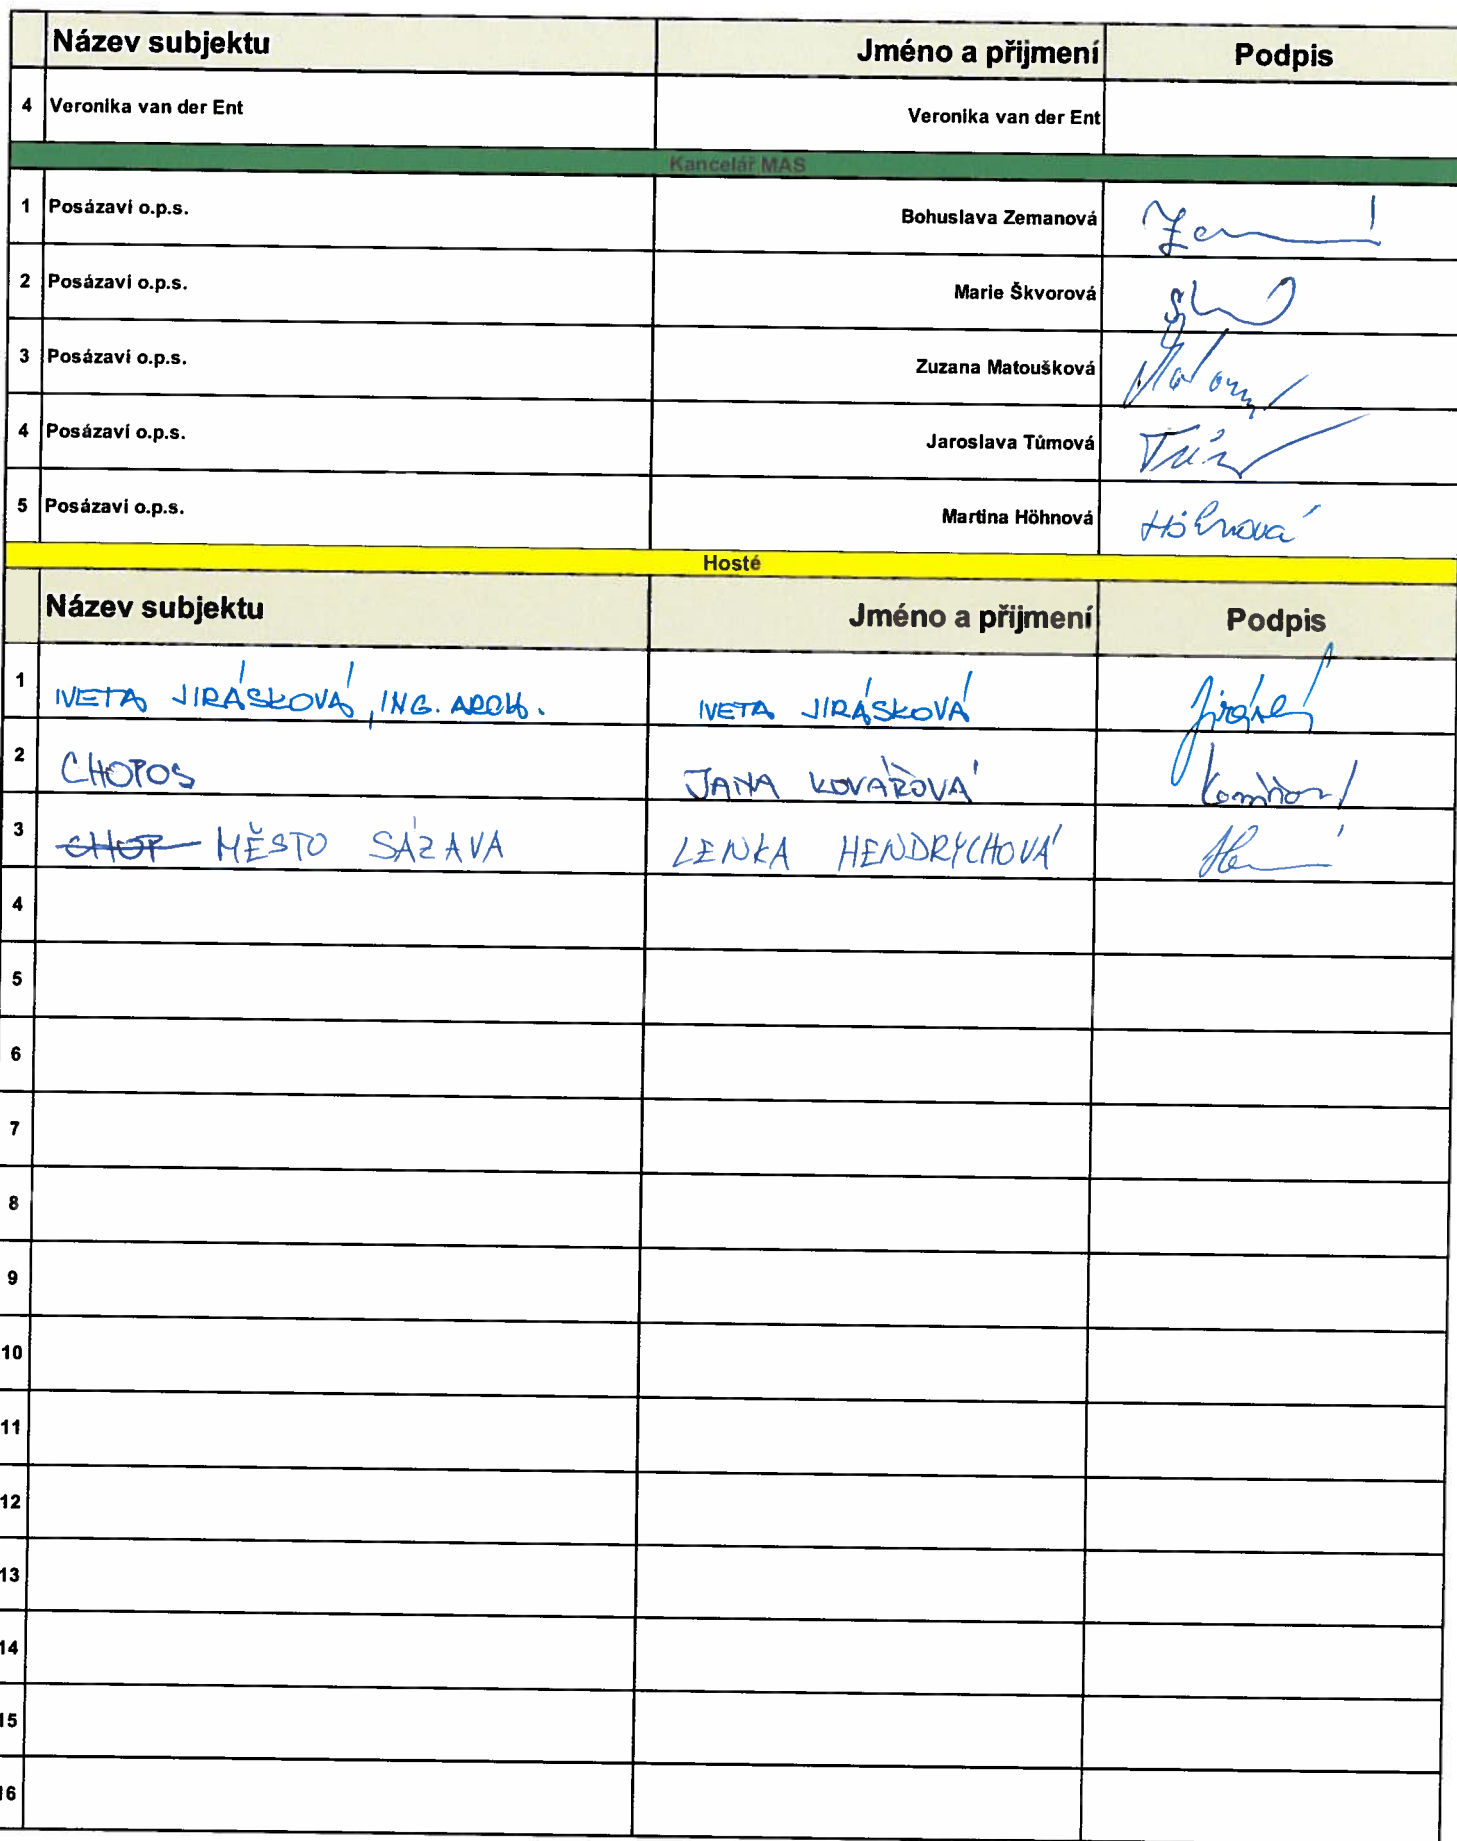 Název subjektu Jméno a přijmení Podpis
4 Veronika van der Ent Veronika van der Ent
Kancelář MAS
1 Posázaví o.p.s. Bohuslava Zemanová
2 Posázaví o.p.s. Marie Škvorová
3 Posázaví o.p.s. Zuzana Matoušková
4 Posázaví o.p.s. Jaroslava Tůmová
5 Posázaví o.p.s. Martina Höhnová Höhnová
Hosté
Název subjektu Jméno a přijmení Podpis
1 IVETA JIRÁSKOVÁ, ING. ARCH. IVETA JIRÁSKOVÁ
2 CHOPOS JANA KOVÁŘOVÁ
3 CHOP MĚSTO SÁZAVA LENKA HENDRYCHOVÁ
4
5
6
7
8
9
10
11
12
13
14
15
16